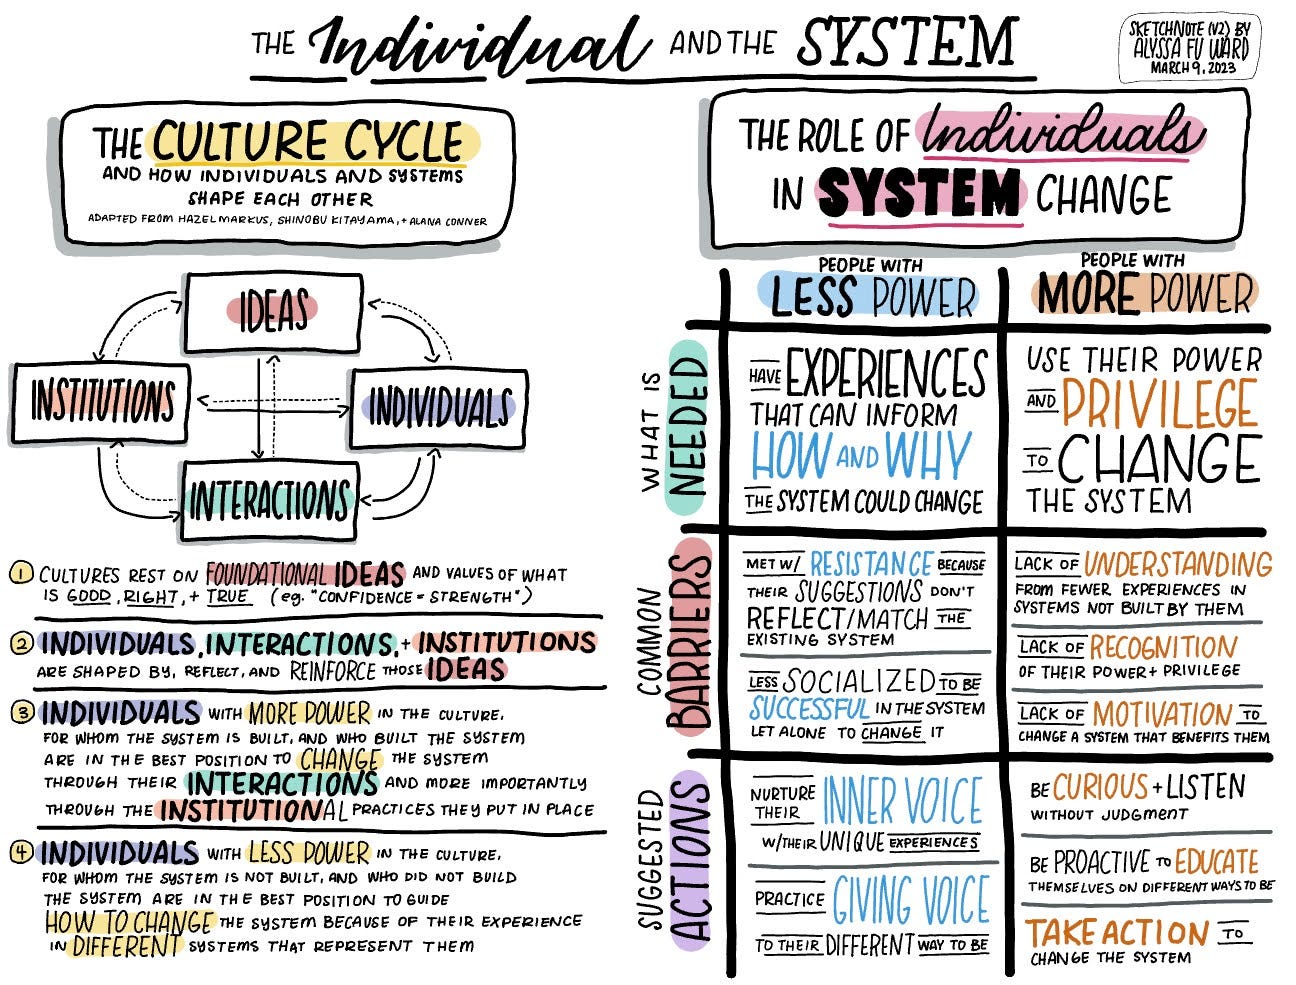 THE Individual AND THE SYSTEM
SKETCHNOTE (V2) BY
ALYSSA FU WARD
MARCH 9, 2023
THE CULTURE CYCLE
AND HOW INDIVIDUALS AND SYSTEMS
SHAPE EACH OTHER
ADAPTED FROM HAZEL MARKUS, SHINOBU KITAYAMA, + ALANA CONNER
IDEAS
INSTITUTIONS
INDIVIDUALS
INTERACTIONS
1 CULTURES REST ON FOUNDATIONAL IDEAS AND VALUES OF WHAT
IS GOOD, RIGHT, + TRUE (eg. "CONFIDENCE = STRENGTH")
2 INDIVIDUALS, INTERACTIONS, + INSTITUTIONS
ARE SHAPED BY, REFLECT, AND REINFORCE THOSE IDEAS
3 INDIVIDUALS WITH MORE POWER IN THE CULTURE,
FOR WHOM THE SYSTEM IS BUILT, AND WHO BUILT THE SYSTEM
ARE IN THE BEST POSITION TO CHANGE THE SYSTEM
THROUGH THEIR INTERACTIONS AND MORE IMPORTANTLY
THROUGH THE INSTITUTIONAL PRACTICES THEY PUT IN PLACE
4 INDIVIDUALS WITH LESS POWER IN THE CULTURE,
FOR WHOM THE SYSTEM IS NOT BUILT, AND WHO DID NOT BUILD
THE SYSTEM ARE IN THE BEST POSITION TO GUIDE
HOW TO CHANGE THE SYSTEM BECAUSE OF THEIR EXPERIENCE
IN DIFFERENT SYSTEMS THAT REPRESENT THEM
THE ROLE OF Individuals
IN SYSTEM CHANGE
PEOPLE WITH
LESS POWER
PEOPLE WITH
MORE POWER
WHAT IS
NEEDED
HAVE EXPERIENCES
THAT CAN INFORM
HOW AND WHY
THE SYSTEM COULD CHANGE
USE THEIR POWER
AND PRIVILEGE
TO CHANGE
THE SYSTEM
COMMON
BARRIERS
MET W/ RESISTANCE BECAUSE
THEIR SUGGESTIONS DON'T
REFLECT/MATCH THE
EXISTING SYSTEM
LESS SOCIALIZED TO BE
SUCCESSFUL IN THE SYSTEM
LET ALONE TO CHANGE IT
LACK OF UNDERSTANDING
FROM FEWER EXPERIENCES IN
SYSTEMS NOT BUILT BY THEM
LACK OF RECOGNITION
OF THEIR POWER + PRIVILEGE
LACK OF MOTIVATION TO
CHANGE A SYSTEM THAT BENEFITS THEM
SUGGESTED
ACTIONS
NURTURE
THEIR INNER VOICE
W/THEIR UNIQUE EXPERIENCES
PRACTICE GIVING VOICE
TO THEIR DIFFERENT WAY TO BE
BE CURIOUS + LISTEN
WITHOUT JUDGMENT
BE PROACTIVE TO EDUCATE
THEMSELVES ON DIFFERENT WAYS TO BE
TAKE ACTION TO
CHANGE THE SYSTEM